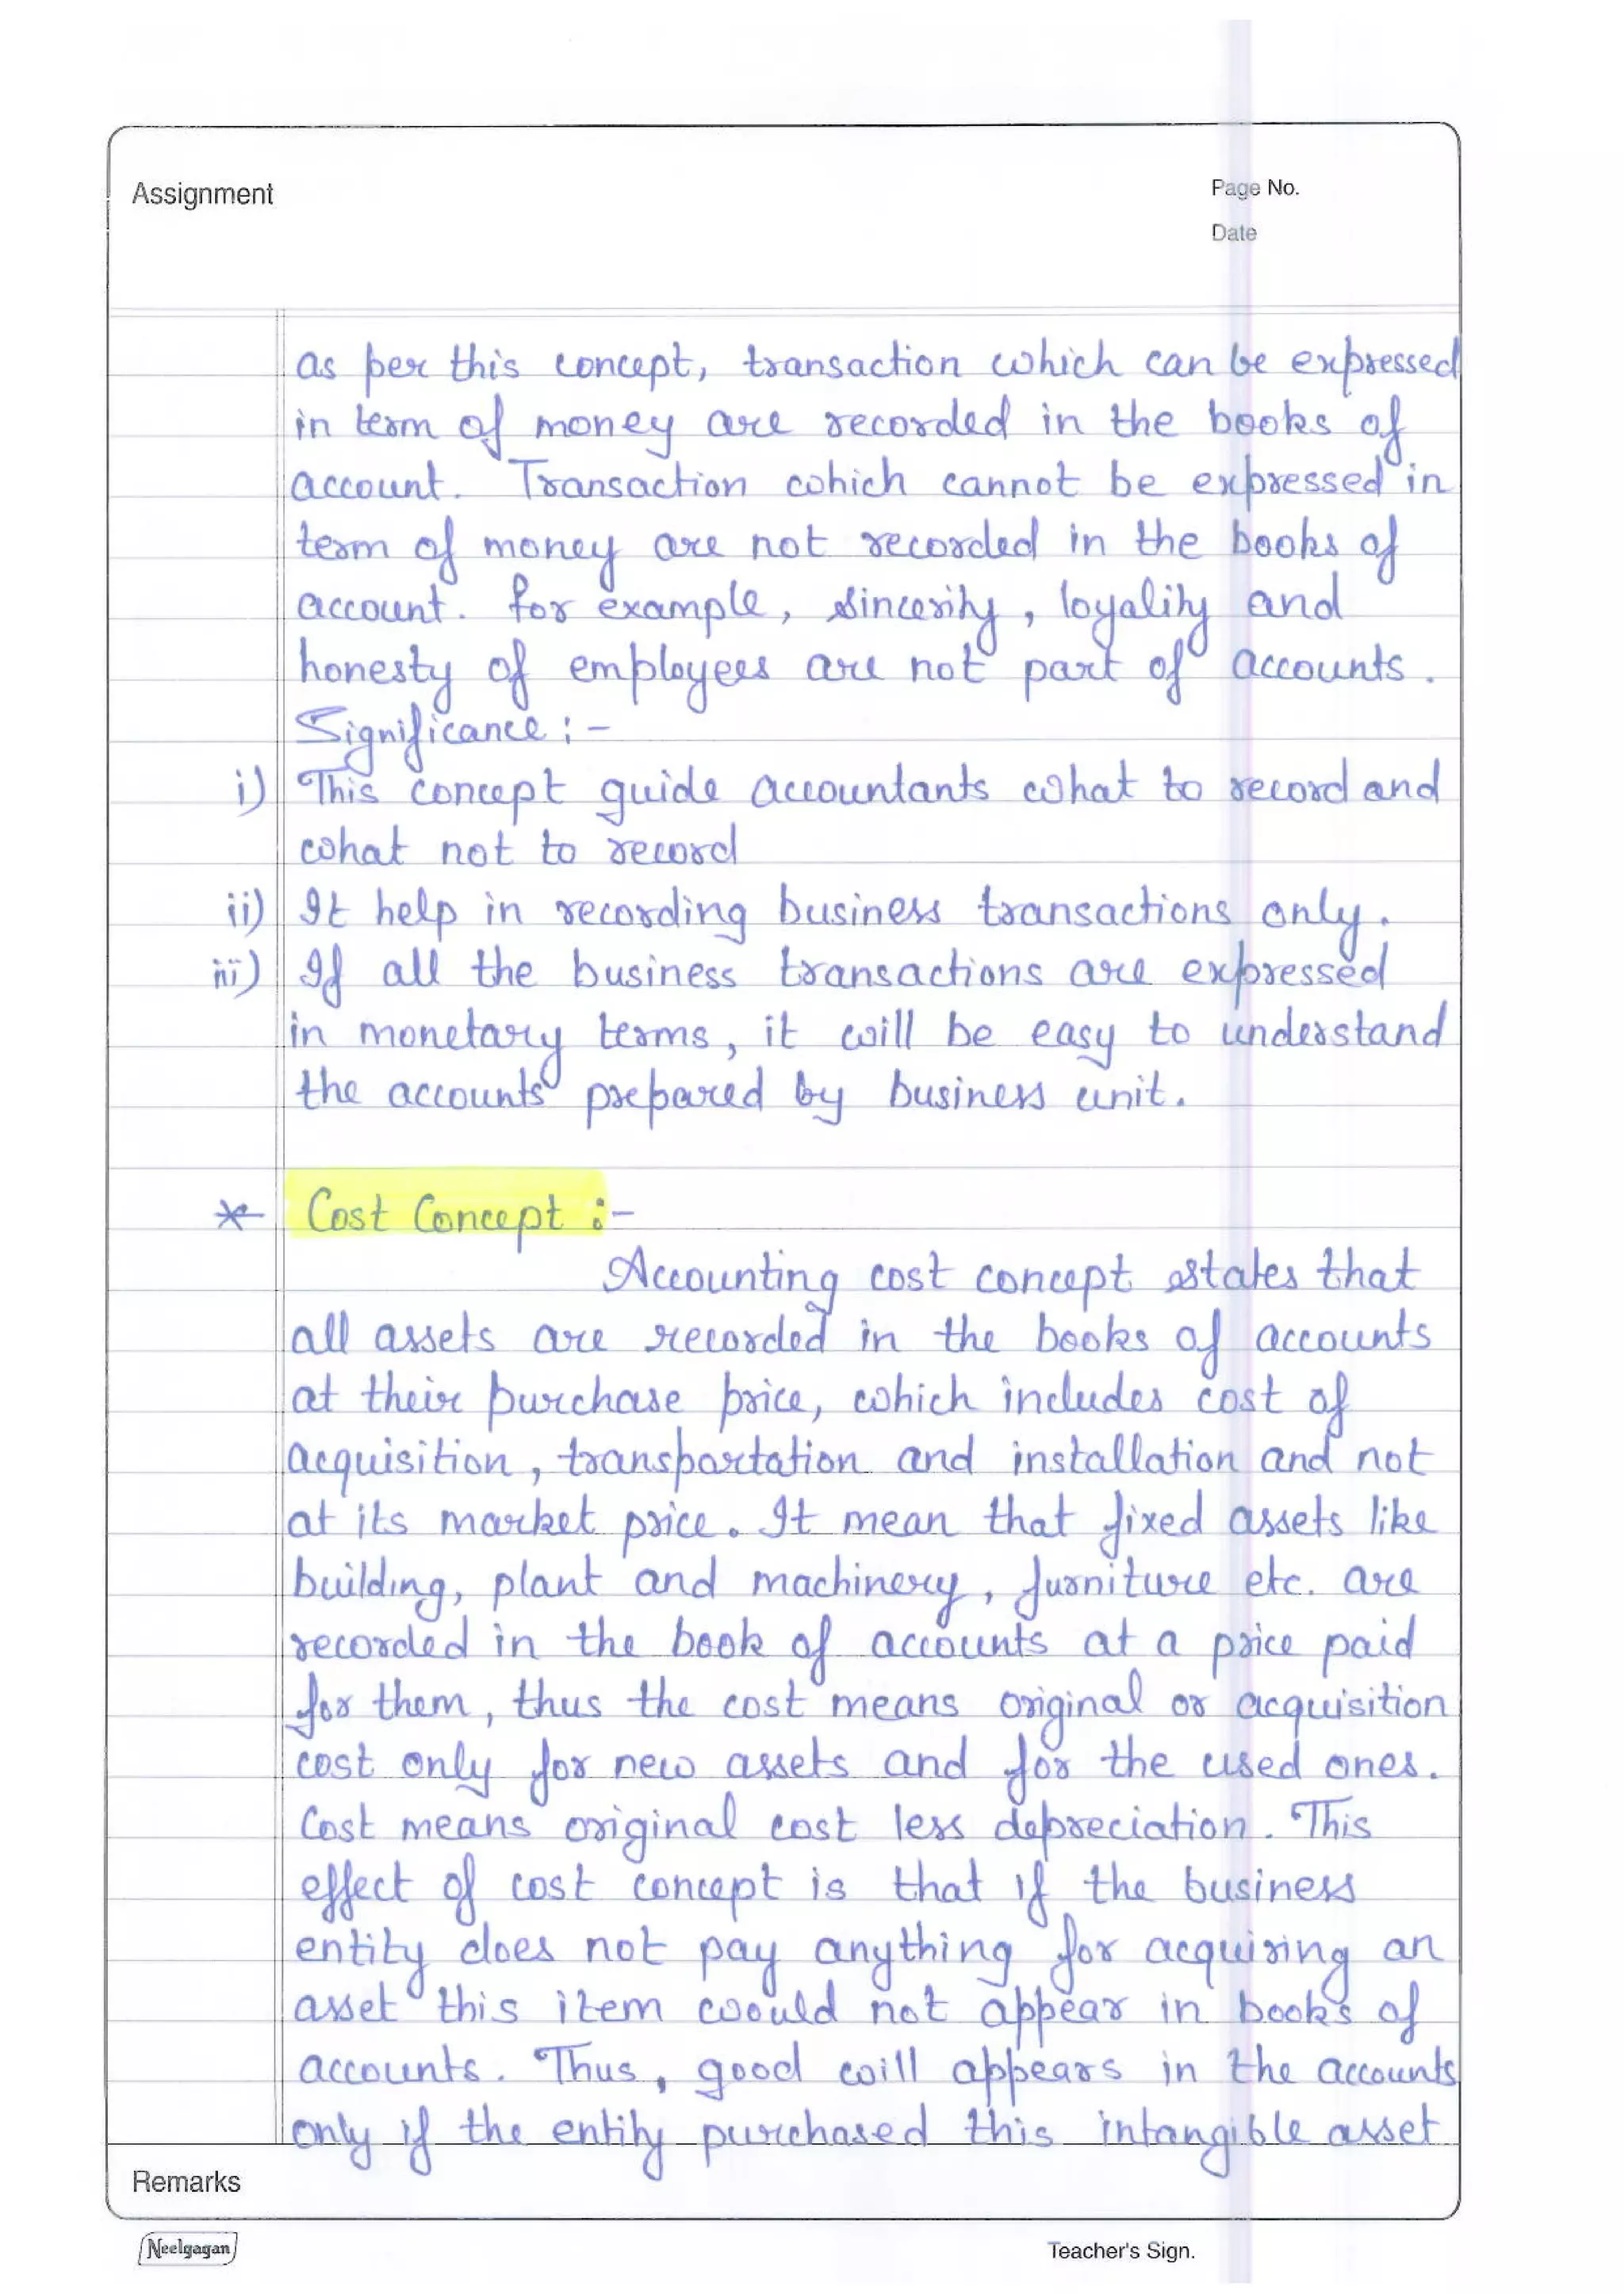 Assignment
Page No.
Date
as per this concept, transaction which can be expressed
in term of money are recorded in the books of
account. Transaction which cannot be expressed in
term of money are not recorded in the books of
account. for example, sincerity, loyality and
honesty of employees are not part of accounts.
Significance :-
i) This concept guide accountants what to record and
what not to record
ii) It help in recording business transactions only.
iii) If all the business transactions are expressed
in monetary terms, it will be easy to understand
the accounts prepared by business unit.
* Cost Concept :-
Accounting cost concept states that
all assets are recorded in the books of accounts
at their purchase price, which includes cost of
acquisition, transportation and installation and not
at its market price. It mean that fixed assets like
building, plant and machinery, furniture etc. are
recorded in the book of accounts at a price paid
for them, thus the cost means original or acquisition
cost only for new assets and for the used ones.
Cost means original cost less depreciation. This
effect of cost concept is that if the business
entity does not pay anything for acquiring an
asset this item woould not appear in books of
accounts. Thus, good will appears in the accounts
only if the entity purchased this intangible asset
Remarks
Neelgagan
Teacher's Sign.